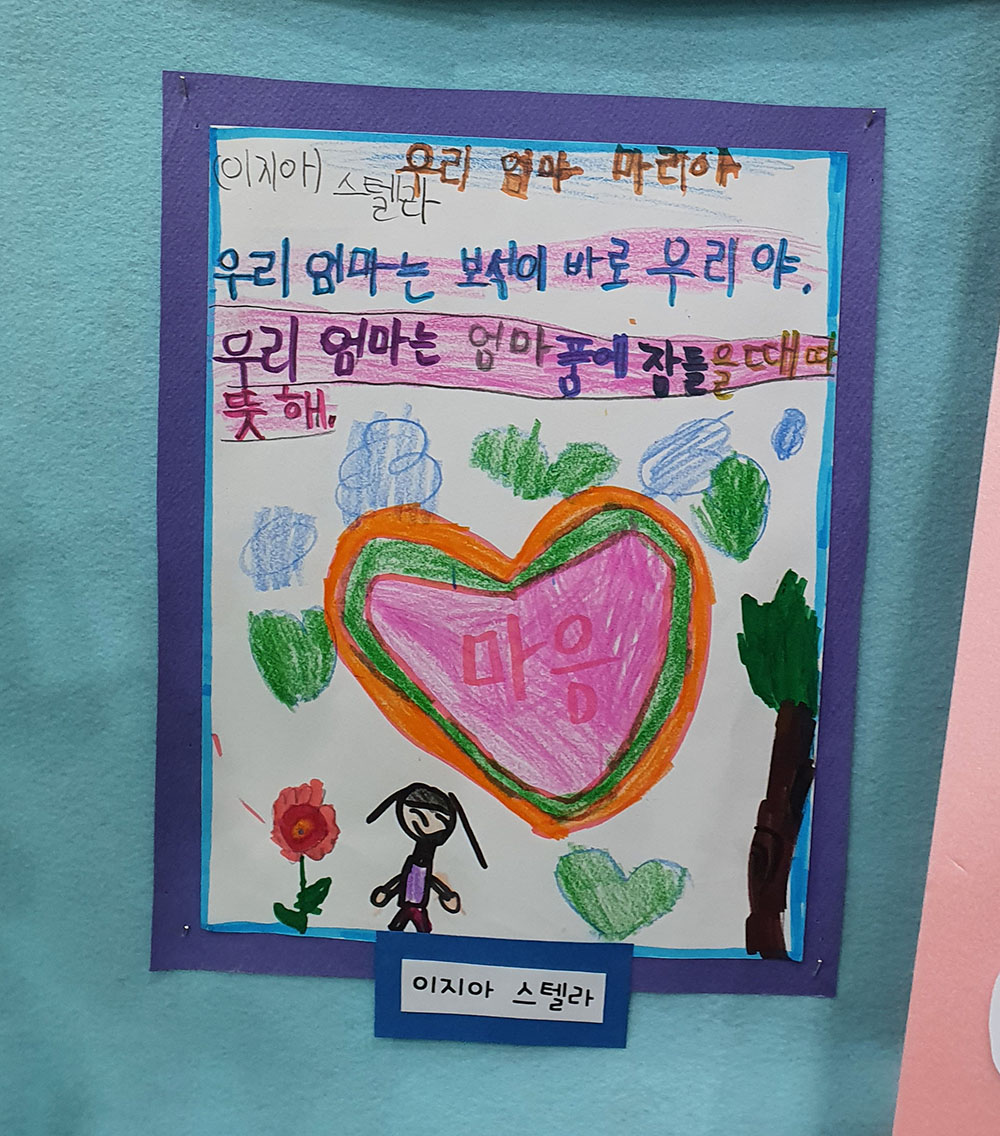 (이지아) 우리 엄마 마리아
스텔라
우리 엄마는 보석이 바로 우리야.
우리 엄마는 엄마 품에 잠들을때 따
뜻해.
마음
이지아 스텔라